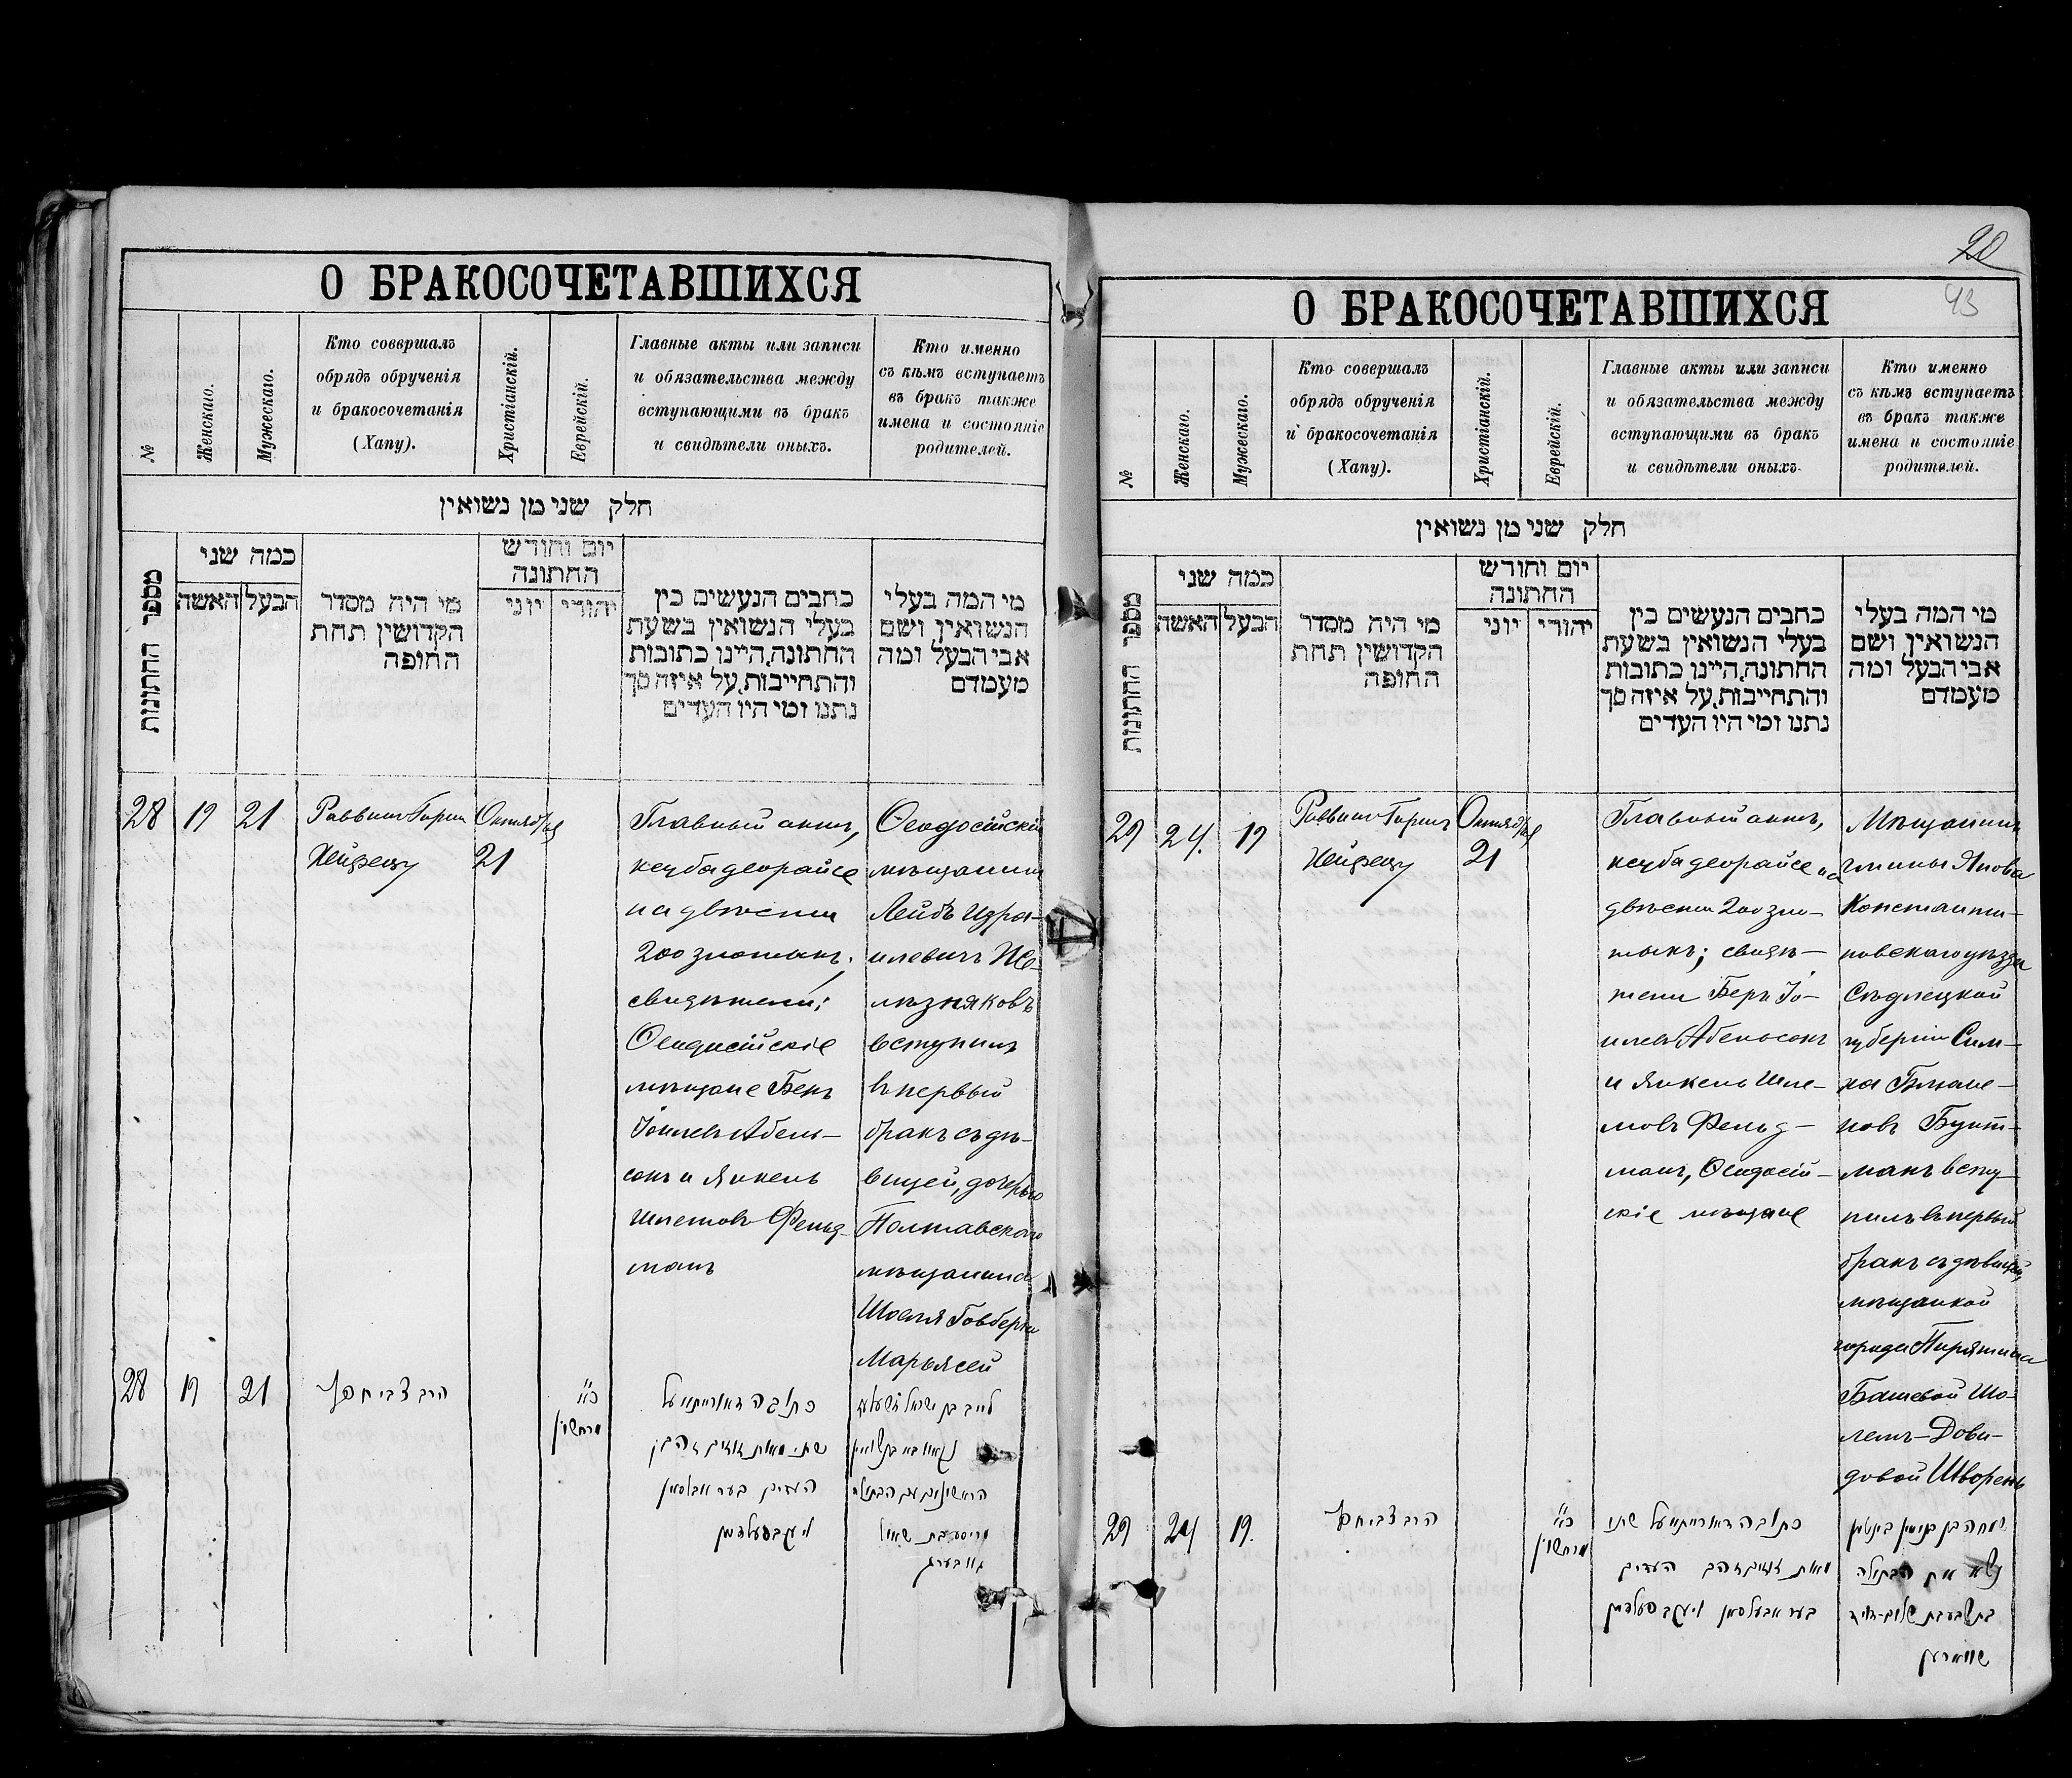 О БРАКОСОЧЕТАВШИХСЯ
№
Женскаго.
Мужескаго.
Кто совершалъ
обрядъ обрученія
и бракосочетанія
(Хапу).
Христіанскій.
Еврейскій.
Главные акты или записи
и обязательства между
вступающими въ бракъ
и свидѣтели оныхъ.
Кто именно
съ кѣмъ вступаетъ
въ бракъ также
имена и состояніе
родителей.
חלק שני מן נשואין
מספר החתונות
כמה שני
הבעל
האשה
מי היה מסדר
הקדושין תחת
החופה
יום וחודש
החתונה
יהודי
יוני
כתבים הנעשים בין
בעלי הנשואין בשעת
החתונה, היינו כתובות
והתחייבות, על איזה סך
נתנו ומי היו העדים
מי המה בעלי
הנשואין ושם
אבי הבעל ומה
מעמדם
28
19
21
Раввинъ Гирш
Хейфецъ
Октября
21
Главный актъ,
кецба деорайсе
на двѣсти
200 злотыхъ;
свидѣтели:
Ѳеодосійскіе
мѣщане Беръ
Іоилевъ Абель-
сонъ и Янкель
Шлемовъ Фельд-
манъ
Ѳеодосійскій
мѣщанинъ
Лейбъ Изра-
илевичъ Же-
лѣзняковъ
вступилъ
въ первый
бракъ съ дѣ-
вицей, дочерью
Полтавскаго
мѣщанина
Шоеля Говберга
Марьясей
28
19
21
הרב צבי חפץ
כ״א
מרחשון
כתובה דאורייתא על
שתי מאות זוזים זהב
העדים בער אבלסאן
ויעקב פעלדמן
לייב בן ישראל
הראשונים עם הבתולה
מריסע בת שאול
גאווברג
20
43
О БРАКОСОЧЕТАВШИХСЯ
№
Женскаго.
Мужескаго.
Кто совершалъ
обрядъ обрученія
и бракосочетанія
(Хапу).
Христіанскій.
Еврейскій.
Главные акты или записи
и обязательства между
вступающими въ бракъ
и свидѣтели оныхъ.
Кто именно
съ кѣмъ вступаетъ
въ бракъ также
имена и состояніе
родителей.
חלק שני מן נשואין
מספר החתונות
כמה שני
הבעל
האשה
מי היה מסדר
הקדושין תחת
החופה
יום וחודש
החתונה
יהודי
יוני
כתבים הנעשים בין
בעלי הנשואין בשעת
החתונה, היינו כתובות
והתחייבות, על איזה סך
נתנו ומי היו העדים
מי המה בעלי
הנשואין ושם
אבי הבעל ומה
מעמדם
29
24
19
Раввинъ Гиршъ
Хейфецъ
Октября
21
Главный актъ,
кецба деорайсе на
двѣсти 200 зло-
тыхъ; свидѣ-
тели Беръ Іо-
илевъ Абельсонъ
и Янкель Шле-
мовъ Фельд-
манъ, Ѳеодосій-
скіе мѣщане
Мѣщанинъ
гмины Янова
Константи-
новскаго уѣзда
Сѣдлецкой
губерніи Сим-
ха
Бунт-
манъ всту-
пилъ въ первый
бракъ съ дѣвицей,
мѣщанкой
города Пирятина
Башевой Шо-
лемъ-Дови-
довой Шворень
29
24
19
הרב צבי חפץ
כ״א
מרחשון
כתובה דאורייתא על שתי
מאות זוזים זהב העדים
בער אבעלסאן ויעקב פעלדמן
שמחה בן בנימין בונטמן
נשא את הבתולה
בת שבע בת שלום-דוד
שווארען